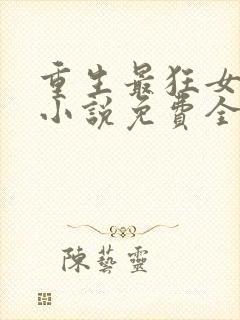 重生最狂女
小說免費全
陳藝靈